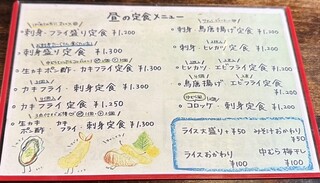 昼の定食メニュー
・刺身・フライ盛り定食 ¥1,200
・刺身盛り定食 ¥1,300
・生カキポン酢・カキフライ定食 ¥1,300
・カキフライ・刺身定食 ¥1,300
・カキフライ定食 ¥1,250
・生カキポン酢・カキフライ・刺身定食 ¥1,300
・刺身・鳥唐揚げ定食 ¥1,200
・刺身・ヒレカツ定食 ¥1,200
・ヒレカツ・エビフライ定食 ¥1,200
・鳥唐揚げ・エビフライ定食 ¥1,200
・コロッケ・刺身定食 ¥1,200
ライス大盛り +¥50
みそ汁おかわり ¥50
ライスおかわり ¥100
中むら梅干し ¥100